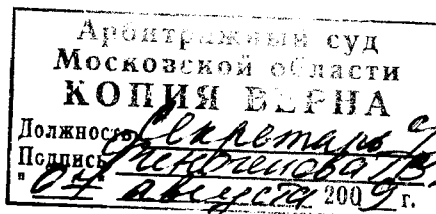 Арбитражный суд
Московской области
КОПИЯ ВЕРНА
Должность Секретарь
Подпись
"07" августа 2009 г.